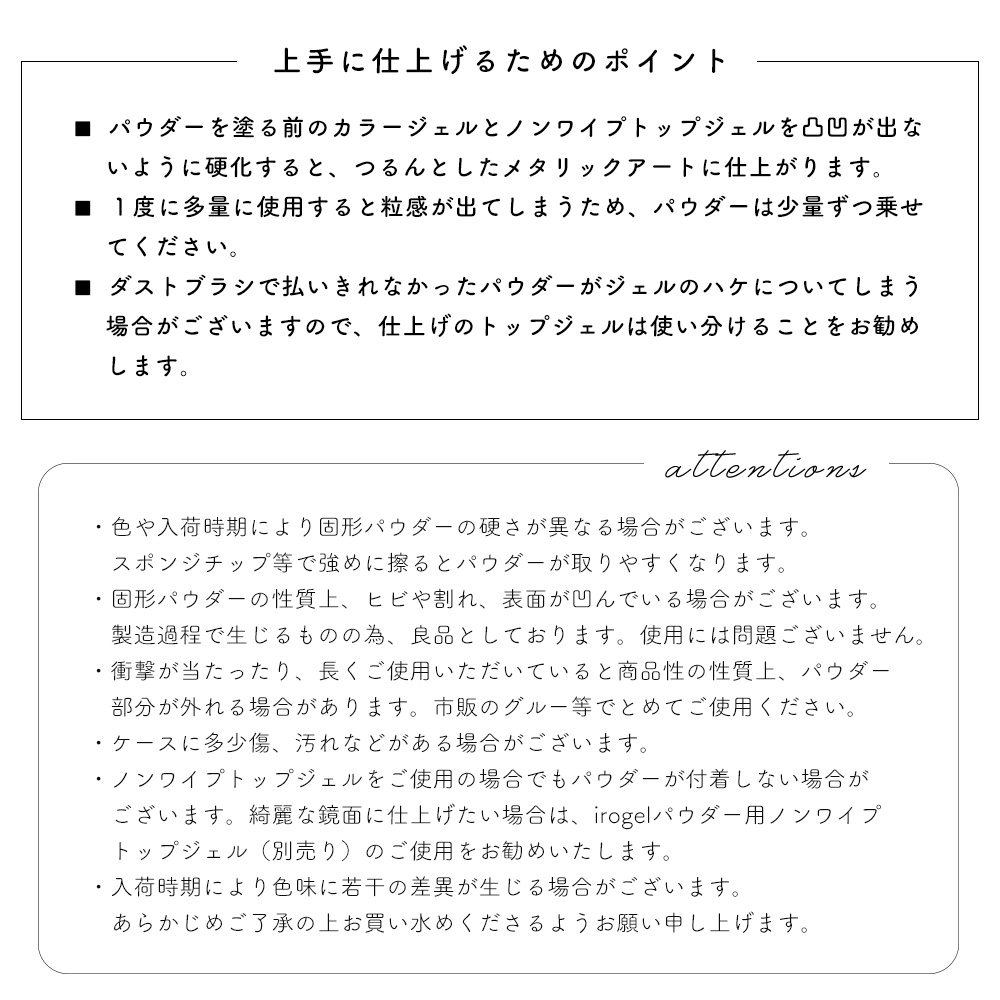 上手に仕上げるためのポイント
■ パウダーを塗る前のカラージェルとノンワイプトップジェルを凸凹が出な
いように硬化すると、つるんとしたメタリックアートに仕上がります。
■ 1度に多量に使用すると粒感が出てしまうため、パウダーは少量ずつ乗せ
てください。
■ ダストブラシで払いきれなかったパウダーがジェルのハケについてしまう
場合がございますので、仕上げのトップジェルは使い分けることをお勧め
します。
attentions
・色や入荷時期により固形パウダーの硬さが異なる場合がございます。
スポンジチップ等で強めに擦るとパウダーが取りやすくなります。
・固形パウダーの性質上、ヒビや割れ、表面が凹んでいる場合がございます。
製造過程で生じるものの為、良品としております。使用には問題ございません。
・衝撃が当たったり、長くご使用いただいていると商品性の性質上、パウダー
部分が外れる場合があります。市販のグルー等でとめてご使用ください。
・ケースに多少傷、汚れなどがある場合がございます。
・ノンワイプトップジェルをご使用の場合でもパウダーが付着しない場合が
ございます。綺麗な鏡面に仕上げたい場合は、irogelパウダー用ノンワイプ
トップジェル（別売り）のご使用をお勧めいたします。
・入荷時期により色味に若干の差異が生じる場合がございます。
あらかじめご了承の上お買い水めくださるようお願い申し上げます。